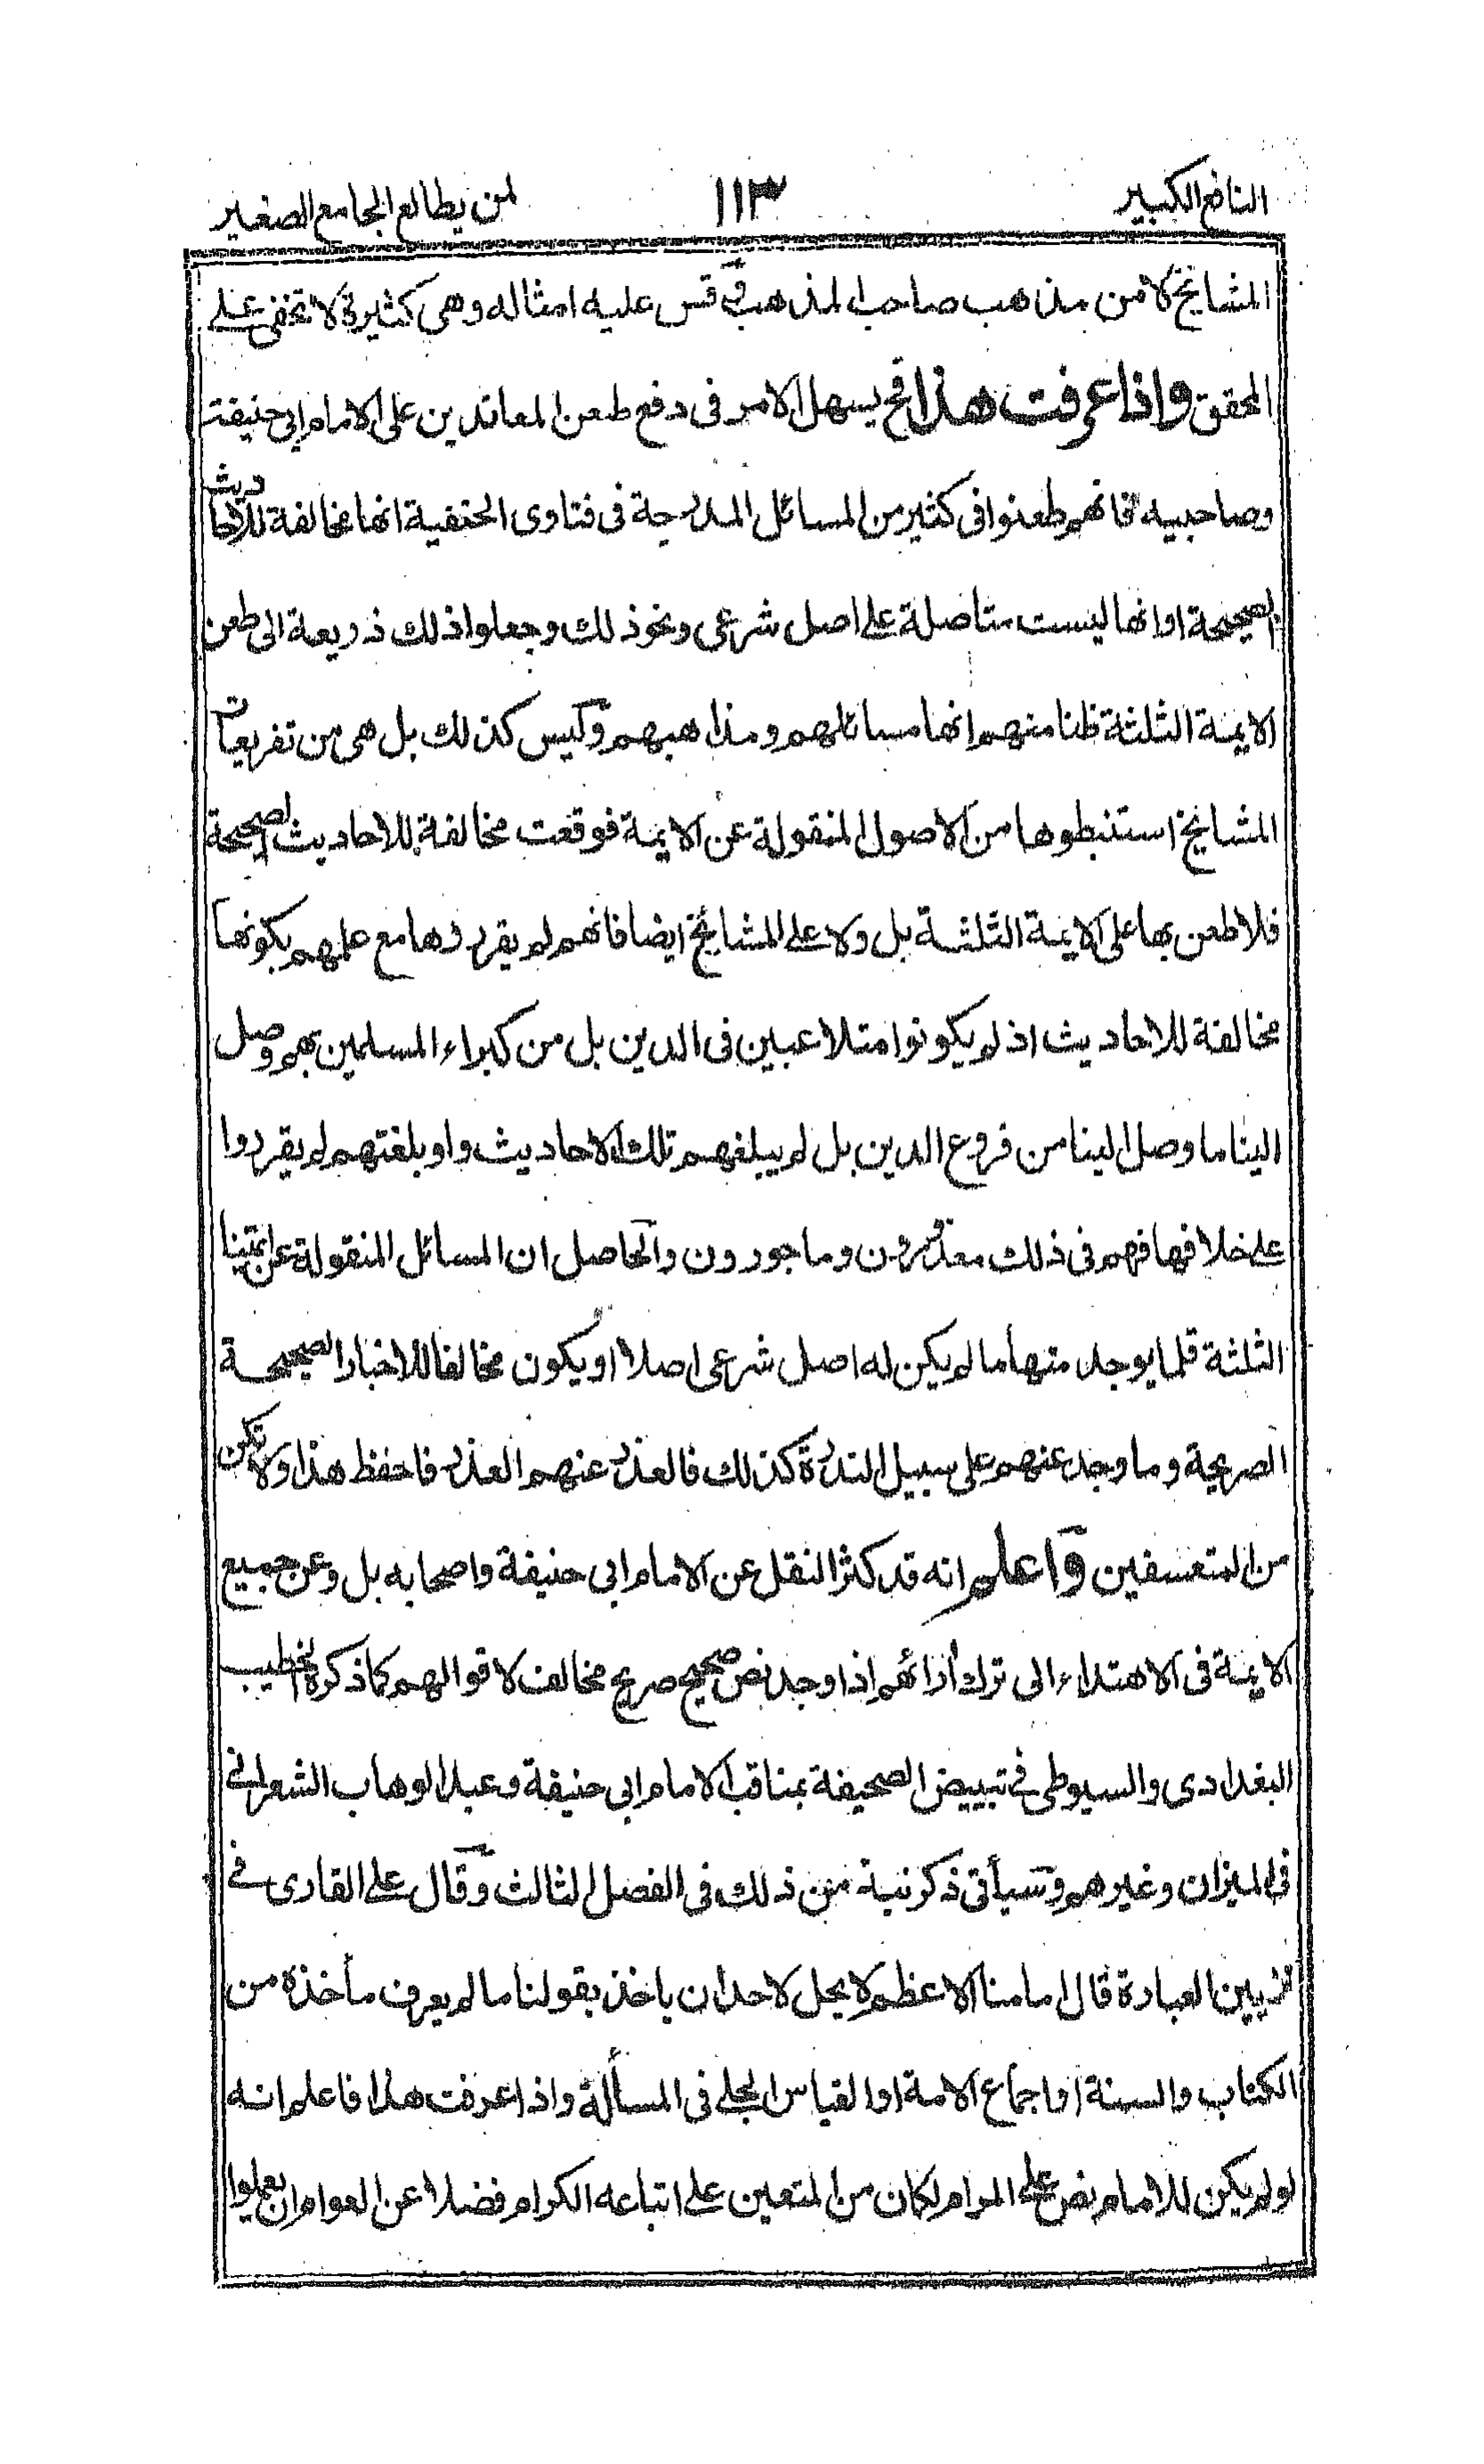 النافع الكبير ١١٣ لمن يطالع الجامع الصغير
المشايخ لا من مذهب صاحب المذهب وقس عليه امثاله وهي كثيرة لا تخفى على
المحقق واذا عرفت هذا فح يسهل الامر فى دفع طعن المعاندين على الامام ابي حنيفة
وصاحبيه فانهم طعنوا فى كثير من المسائل المدرجة فى فتاوى الحنفية انها مخالفة للاحاديث
الصحيحة او انها ليست متاصلة على اصل شرعى ونحو ذلك وجعلوا ذلك ذريعة الى طعن
الايمة الثلثة ظنا منهم انها مسائلهم ومذاهبهم وليس كذلك بل هى من تفريعات
المشايخ استنبطوها من الاصول المنقولة عن الايمة فوقعت مخالفة للاحاديث الصحيحة
فلا طعن بها على الايمة الثلثة بل ولا على المشائخ ايضا فانهم لم يقرروها مع علمهم بكونها
مخالفة للاحاديث اذ لم يكونوا متلاعبين فى الدين بل من كبراء المسلمين بهم وصل
الينا ما وصل الينا من فروع الدين بل لم يبلغهم تلك الاحاديث ولو بلغتهم لم يقرروا
على خلافها فهم فى ذلك معذورون وماجورون والحاصل ان المسائل المنقولة عن ايمتنا
الثلثة قلما يوجد منها ما لم يكن له اصل شرعى اصلا او يكون مخالفا للاخبار الصحيحة
الصريحة وما وجد عنهم على سبيل الندرة كذلك فالعذر عنهم العذر فاحفظ هذا ولا تكن
من المتعسفين واعلم انه قد كثر النقل عن الامام ابى حنيفة واصحابه بل وعن جميع
الايمة فى الاهتداء الى ترك أرائهم اذا وجد نص صحيح صريح مخالف لاقوالهم كما ذكره الخطيب
البغدادى والسيوطى فى تبييض الصحيفة بمناقب الامام ابى حنيفة وعبد الوهاب الشعرانى
فى الميزان وغيرهم وسيأتى ذكر نبذ من ذلك فى الفصل الثالث وقال على القارى فى
تزيين العبارة قال امامنا الاعظم لا يحل لاحد ان ياخذ بقولنا ما لم يعرف مأخذه من
الكتاب والسنة او اجماع الامة او القياس الجلى فى المسألة واذا عرفت هذا فاعلم انه
لو لم يكن للامام نص على المرام لكان من المتعين على اتباعه الكرام فضلا عن العوام ان يعملوا